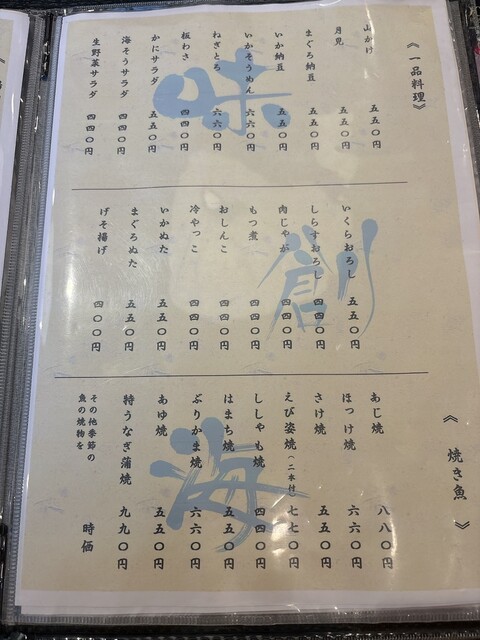 《一品料理》
山かけ 五五〇円
月見 五五〇円
まぐろ納豆 五五〇円
いか納豆 五五〇円
いかそうめん 六六〇円
ねぎとろ 六六〇円
板わさ 四四〇円
かにサラダ 五五〇円
海そうサラダ 四四〇円
生野菜サラダ 四四〇円
味
いくらおろし 五五〇円
しらすおろし 四四〇円
肉じゃが 四四〇円
もつ煮 四四〇円
おしんこ 四四〇円
冷やっこ 四四〇円
いかぬた 五五〇円
まぐろぬた 五五〇円
げそ揚げ 四〇〇円
創
《焼き魚》
あじ焼 八八〇円
ほっけ焼 六六〇円
さけ焼 五五〇円
えび姿焼(二本付) 七七〇円
ししゃも焼 四四〇円
はまち焼 五五〇円
ぶりかま焼 六六〇円
あゆ焼 五五〇円
特うなぎ蒲焼 九九〇円
その他季節の
魚の焼物を 時価
海